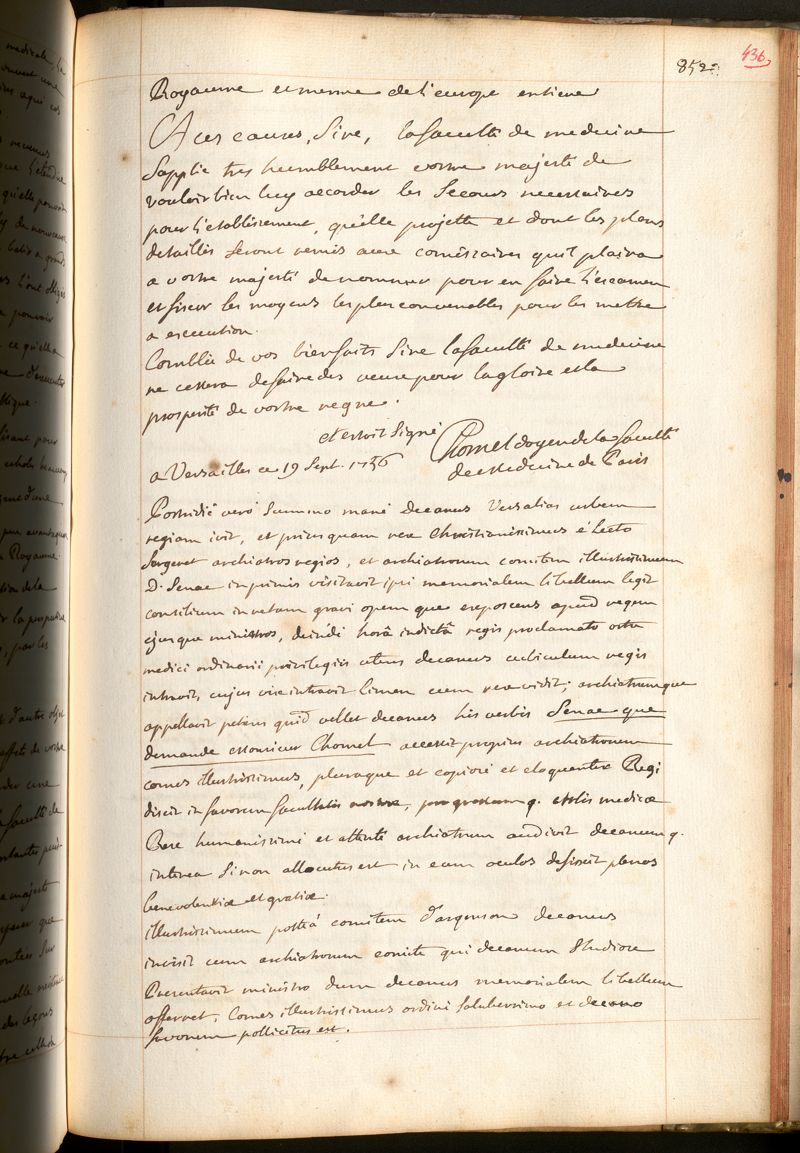 852.
436
Royaume et mesme de l'europe entiere
A ces causes, Sire, la faculté de medecine
supplie tres humblement vostre majesté de
vouloir bien luy accorder les secours necessaires
pour l'etablissement, qu'elle projette et dont les plans
detaillés seront remis aux comissaires qu'il plaira
a vostre majesté de nommer pour en faire l'examen
et fixer les moyens les plus convenables pour les mettre
a execution.
Comblée de vos bienfaits Sire la faculté de medecine
ne cessera de faire des veux pour la gloire et la
prosperité de vostre regne.
et estoit signé Chomel doyen de la faculté
de Medecine de Paris
a Versailles ce 19 Sept. 1756
Postridiè verò summo manè decanus Versalias urbem
regiam ivit, et priusquam rex christianissimus è lecto
surgeret archiatros regios, et archiatrorum comitem illustrissimum
D. Senac inprimis visitavit ipsi memorialem libellum legit
consilium in re tam gravi opemque exposcens apud regem
ejusque ministros, deindè horâ indictâ regis proclamato ortu
medici ordinarii privilegiis utens decanus cubiculum regis
intravit, cujus vix intravit limen eum rex vidit; archiatrumque
appellavit petens quid vellet decanus his verbis Senac que
demande monsieur Chomel accessit propius archiatrorum
comes illustrissimus, pluraque et copiosè et eloquenter Regi
dixit in favorem facultatis nostræ, q. medicæ
Rex humanissimè et attentè archiatrum audivit decanumq.
interea si non allocutus est in eum oculos defixit plenos
benevolentiæ et gratiæ.
illustrissimum posteà comitem d'argenson decanus
invisit cum archiatrorum comite qui decanum studiose
Præsentavit ministro dum decanus memorialem libellum
offerret, Comes illustrissimus ordini saluberrimo et decano
favorem pollicitus est.